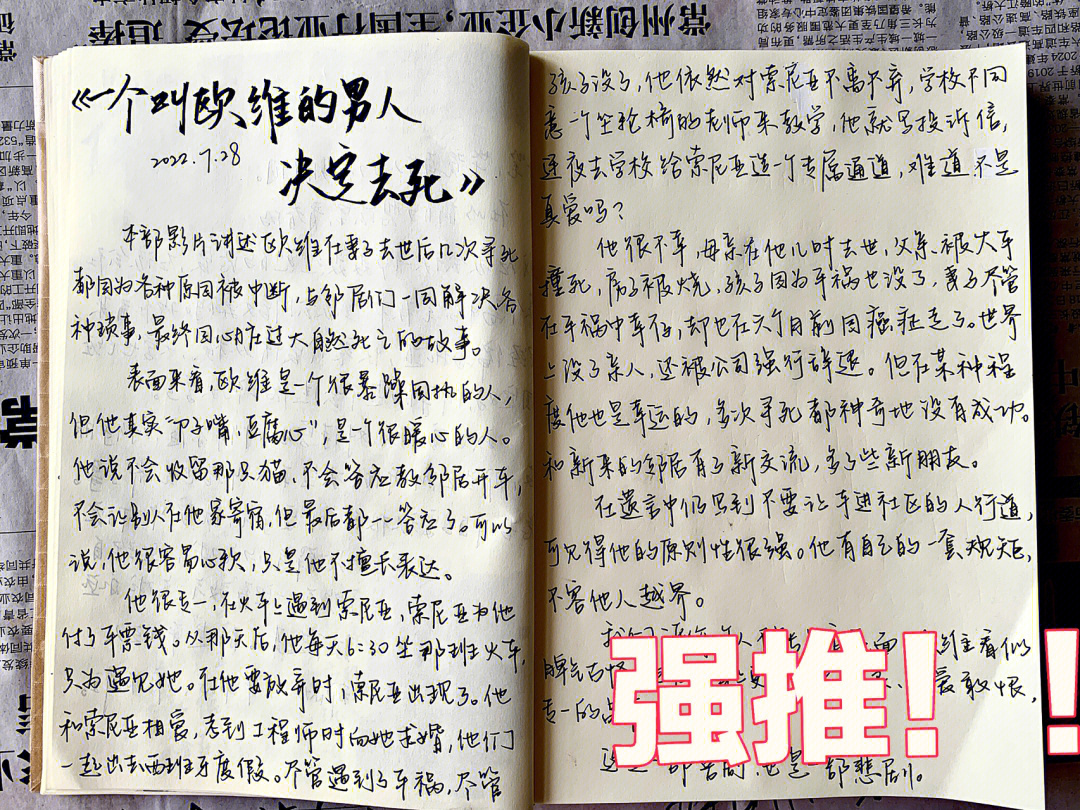 《一个叫欧维的男人
2022.7.28
决定去死》
本部影片讲述欧维在妻子去世后几次寻死
都因为各种原因被中断，与邻居们一同解决各
种琐事，最终因心脏过大自然死亡的故事。
表面来看，欧维是一个很暴躁固执的人，
但他其实“刀子嘴，豆腐心”，是一个很暖心的人。
他说不会收留那只猫，不会答应教邻居开车，
不会让别人在他家寄宿，但最后都一一答应了。可以
说，他很容易心软，只是他不擅长表达。
他很专一，在火车上遇到索尼亚，索尼亚为他
付了车票钱。从那天后，他每天6:30坐那班火车，
只为遇见她。在他要放弃时，索尼亚出现了。他
和索尼亚相爱，考到工程师时向她求婚，他们
一起出去西班牙度假。尽管遇到了车祸，尽管
孩子没了，他依然对索尼亚不离不弃，学校不同
意一个坐轮椅的老师来教学，他就写投诉信，
连夜去学校给索尼亚造一个专属通道，难道不是
真爱吗？
他很不幸，母亲在他儿时去世，父亲被火车
撞死，房子被烧，孩子因为车祸也没了，妻子尽管
在车祸中幸存，却也在六个月前因癌症走了。世界
上没了亲人，还被公司强行辞退。但在某种程
度他也是幸运的，多次寻死都神奇地没有成功。
和新来的邻居有了新交流，多了些新朋友。
在遗言中仍写到不要让车进社区的人行道，
可见得他的原则性很强。他有自己的一套规矩，
不容他人越界。
看似
脾气古怪
爱敢恨，
专一的品
是一部悲剧。
强推！！